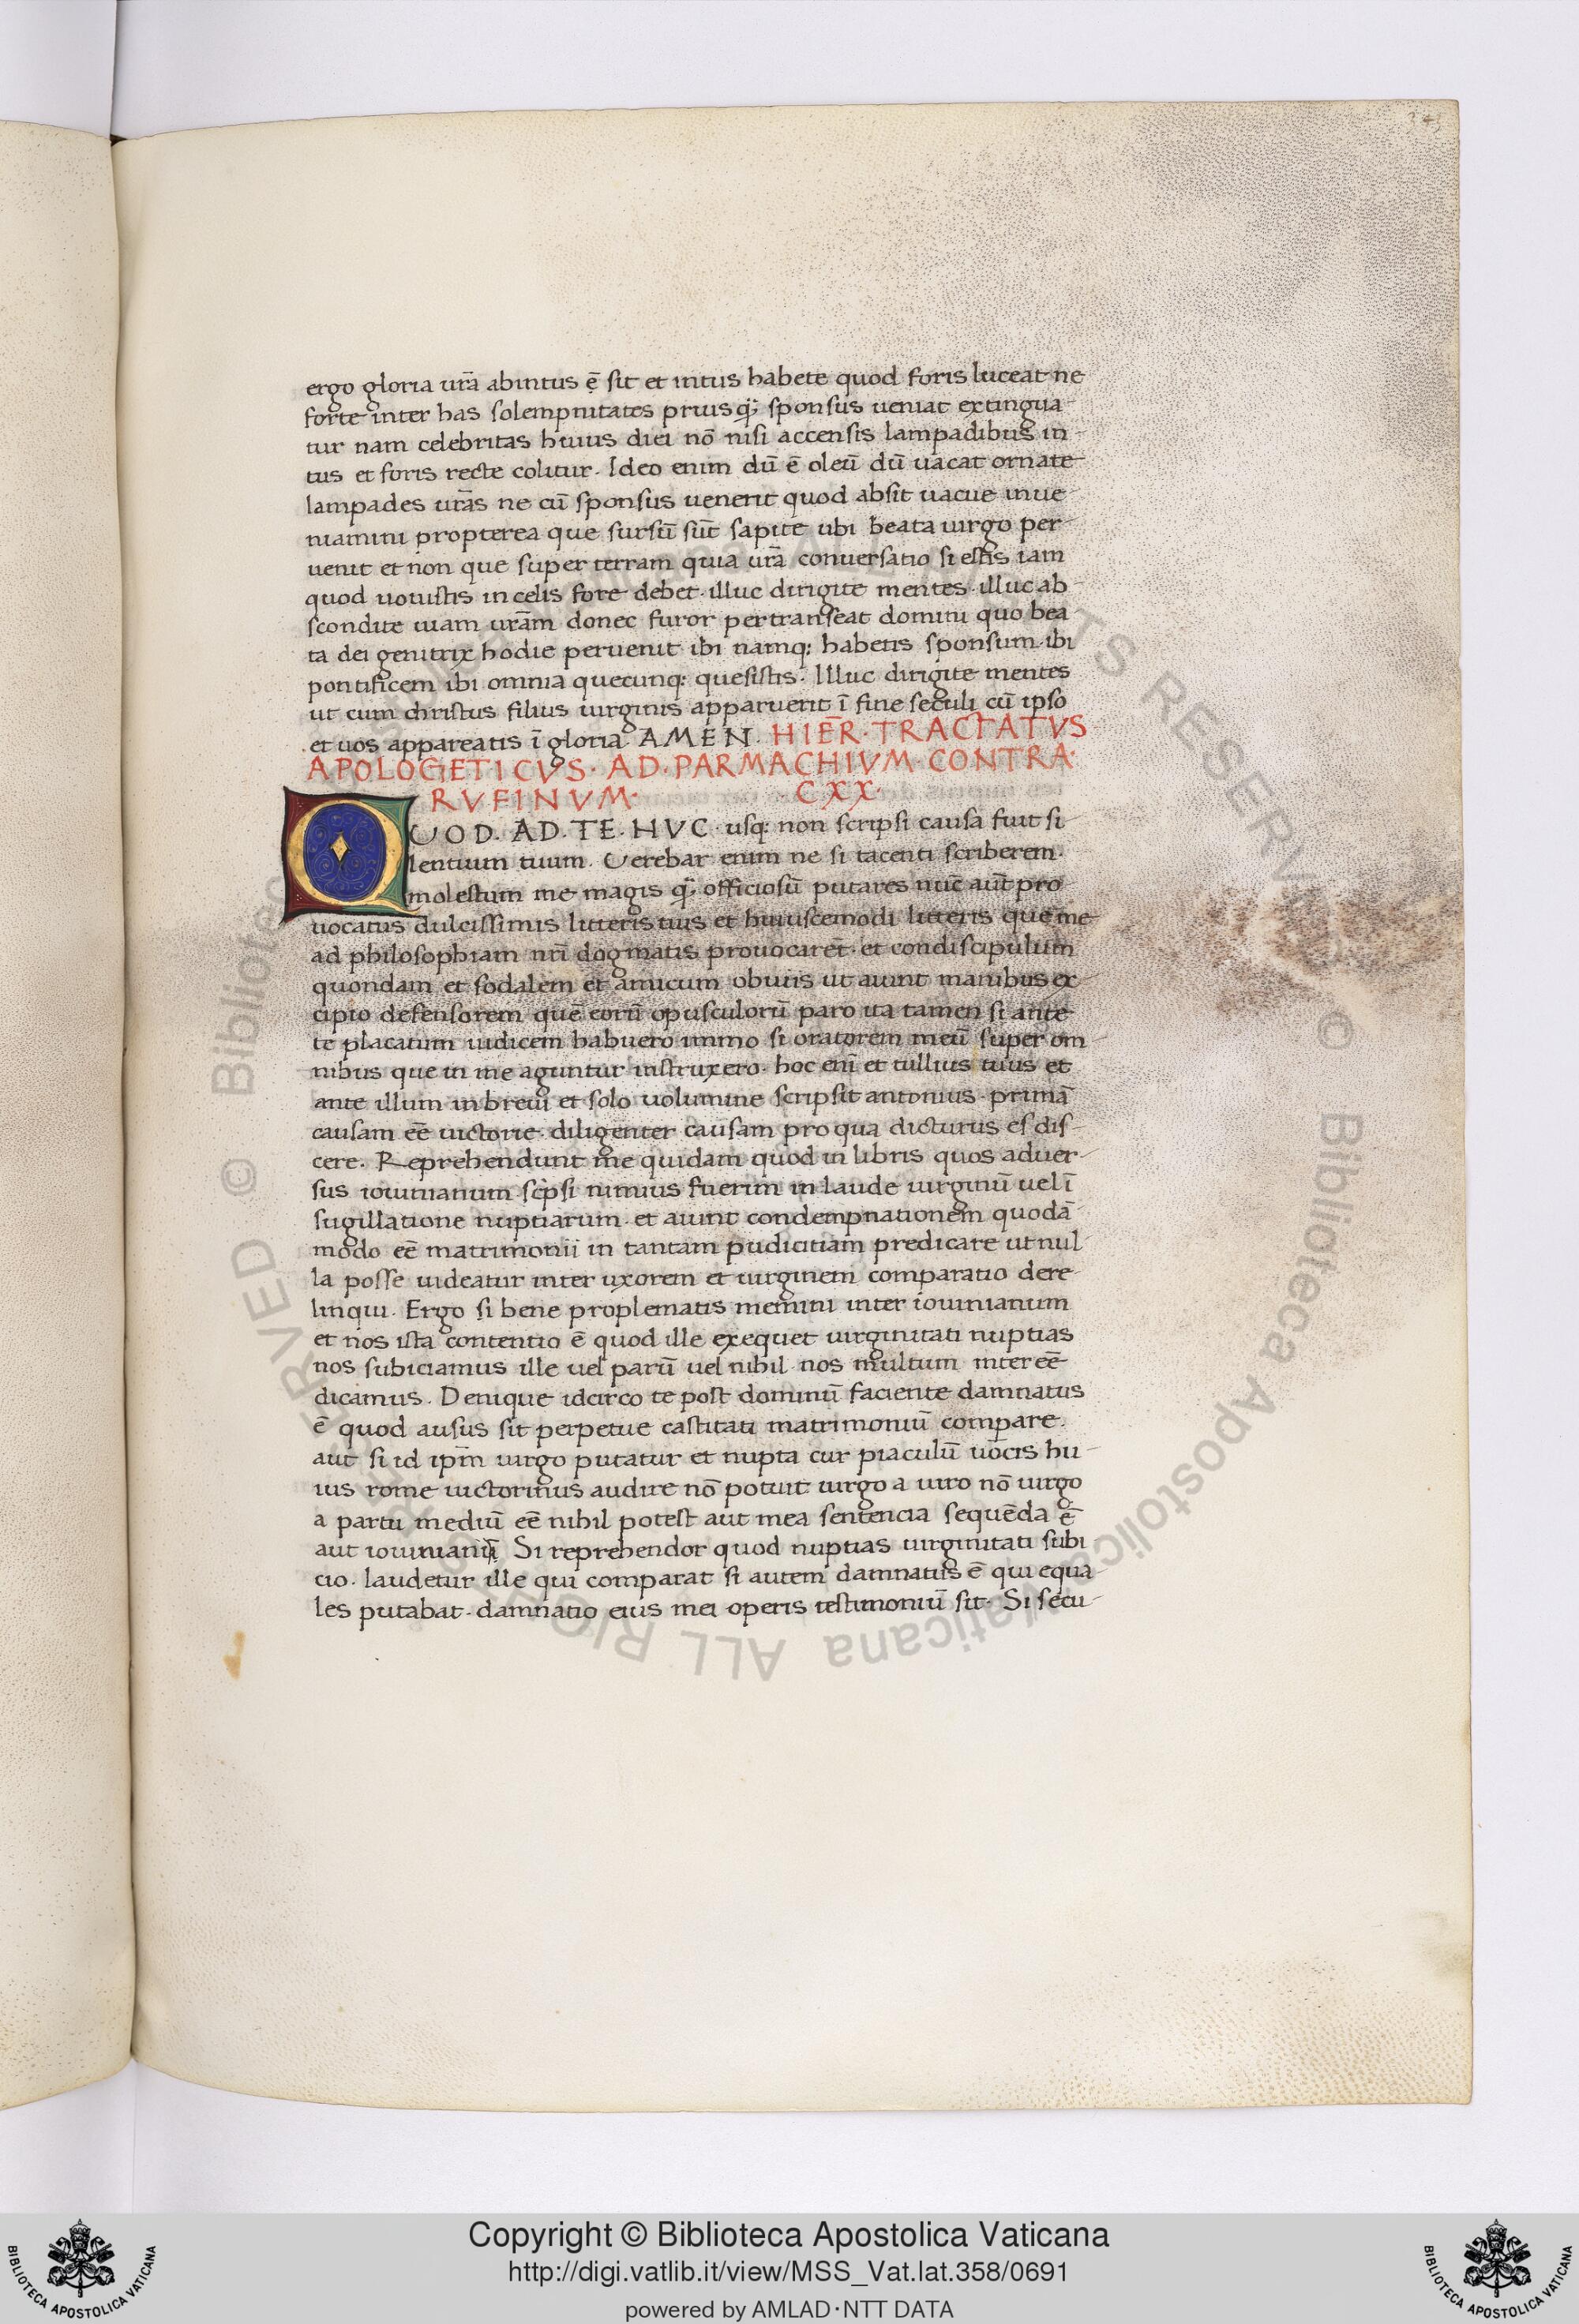 343
ergo gloria urā abintus ē sit et intus habete quod foris luceat ne
forte inter has solempnitates prius q̃; sponsus ueniat extingua-
tur nam celebritas huius diei nō nisi accensis lampadibus in-
tus et foris recte colitur. Ideo enim dū ē oleū dū uacat ornate
lampades urās ne cū sponsus uenerit quod absit uacue inue-
niamini propterea que sursū sūt sapite ubi beata uirgo per-
uenit et non que super terram quia urā conuersatio si estis iam
quod uouistis in celis fore debet. illuc dirigite mentes. illuc ab-
scondite uiam urām donec furor pertranseat domini quo bea
ta dei genitrix hodie peruenit. ibi namq; habetis sponsum. ibi
pontificem ibi omnia quecunq; quesistis. Illuc dirigite mentes
ut cum christus filius uirginis apparuerit ī fine seculi cū ipso
et uos appareatis ī gloria. AMEN. HIER̄. TRACTATVS
APOLOGETICVS. AD. PARMACHIVM. CONTRA.
RVFINVM. CXX.
QUOD. AD. TE. HVC. usq; non scripsi causa fuit si-
lentium tuum. Uerebar enim ne si tacenti scriberem.
molestum me magis q̃; officiosū putares nūc aūt pro-
uocatus dulcissimis litteris tuis et huiuscemodi litteris que me
ad philosophiam nrī dogmatis prouocarēt. et condiscipulum
quondam et sodalem et amicum obuiis ut aiunt manibus ex-
cipio defensorem quē eorū opusculorū paro ita tamen si ante
te placatum iudicem habuero immo si oratorem meū super om-
nibus que in me aguntur instruxero. hoc enī et tullius tuus et
ante illum in breui et solo uolumine scripsit antonius. primā
causam eē uictorie. diligenter causam pro qua dicturus es dis-
cere. Reprehendunt me quidam quod in libris quos aduer-
sus iouinianum scpsi nimius fuerim in laude uirginū uel ī
sugillatione nuptiarum. et aiunt condempnationem quodā
modo eē matrimonii in tantam pudicitiam predicare ut nul-
la posse uideatur inter uxorem et uirginem comparatio dere-
linqui. Ergo si bene proplematis memini inter iouinianum
et nos ista contentio ē quod ille exequet uirginitati nuptias
nos subiciamus ille uel parū uel nibil nos multum interēē
dicamus. Denique idcirco te post dominū faciente damnatus
ē quod ausus sit perpetue castitati matrimoniū compare.
aut si id ipm̄ uirgo putatur et nupta cur piaculū uocis hu-
ius rome uictorinus audire nō potuit uirgo a uiro nō uirgo
a partu mediū eē nibil potest aut mea sentencia sequēda ē
aut iouiniani. Si reprehendor quod nuptias uirginitati subi
cio. laudetur ille qui comparat si autem damnatus ē qui equa-
les putabat. damnatio eius mei operis testimoniū sit. Si secu-
Copyright © Biblioteca Apostolica Vaticana
http://digi.vatlib.it/view/MSS_Vat.lat.358/0691
powered by AMLAD·NTT DATA